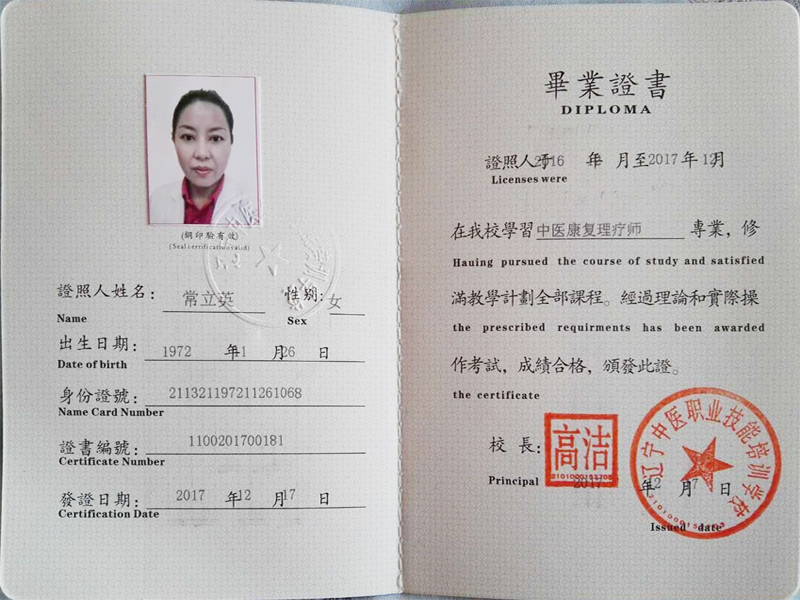 (鋼印驗有效)
(Seal certification valid)
證照人姓名： 常立英 性别： 女
Name Sex
出生日期： 1972 年 1 月 26 日
Date of birth
身份證號： 211321197211261068
Name Card Number
證書編號： 1100201700181
Certificate Number
發證日期： 2017 年 12 月 17 日
Certification Date
畢業證書
DIPLOMA
證照人于 2016 年 月至 2017 年 12 月
Licenses were
在我校學習 中医康复理疗师 專業，修
Hauing pursued the course of study and satisfied
滿教學計劃全部課程。經過理論和實際操
the prescribed requirments has been awarded
作考試，成績合格，頒發此證。
the certificate
校長： 高洁
Principal 2017 年 12 月 7 日
Issued date
辽宁中医职业技能培训学校